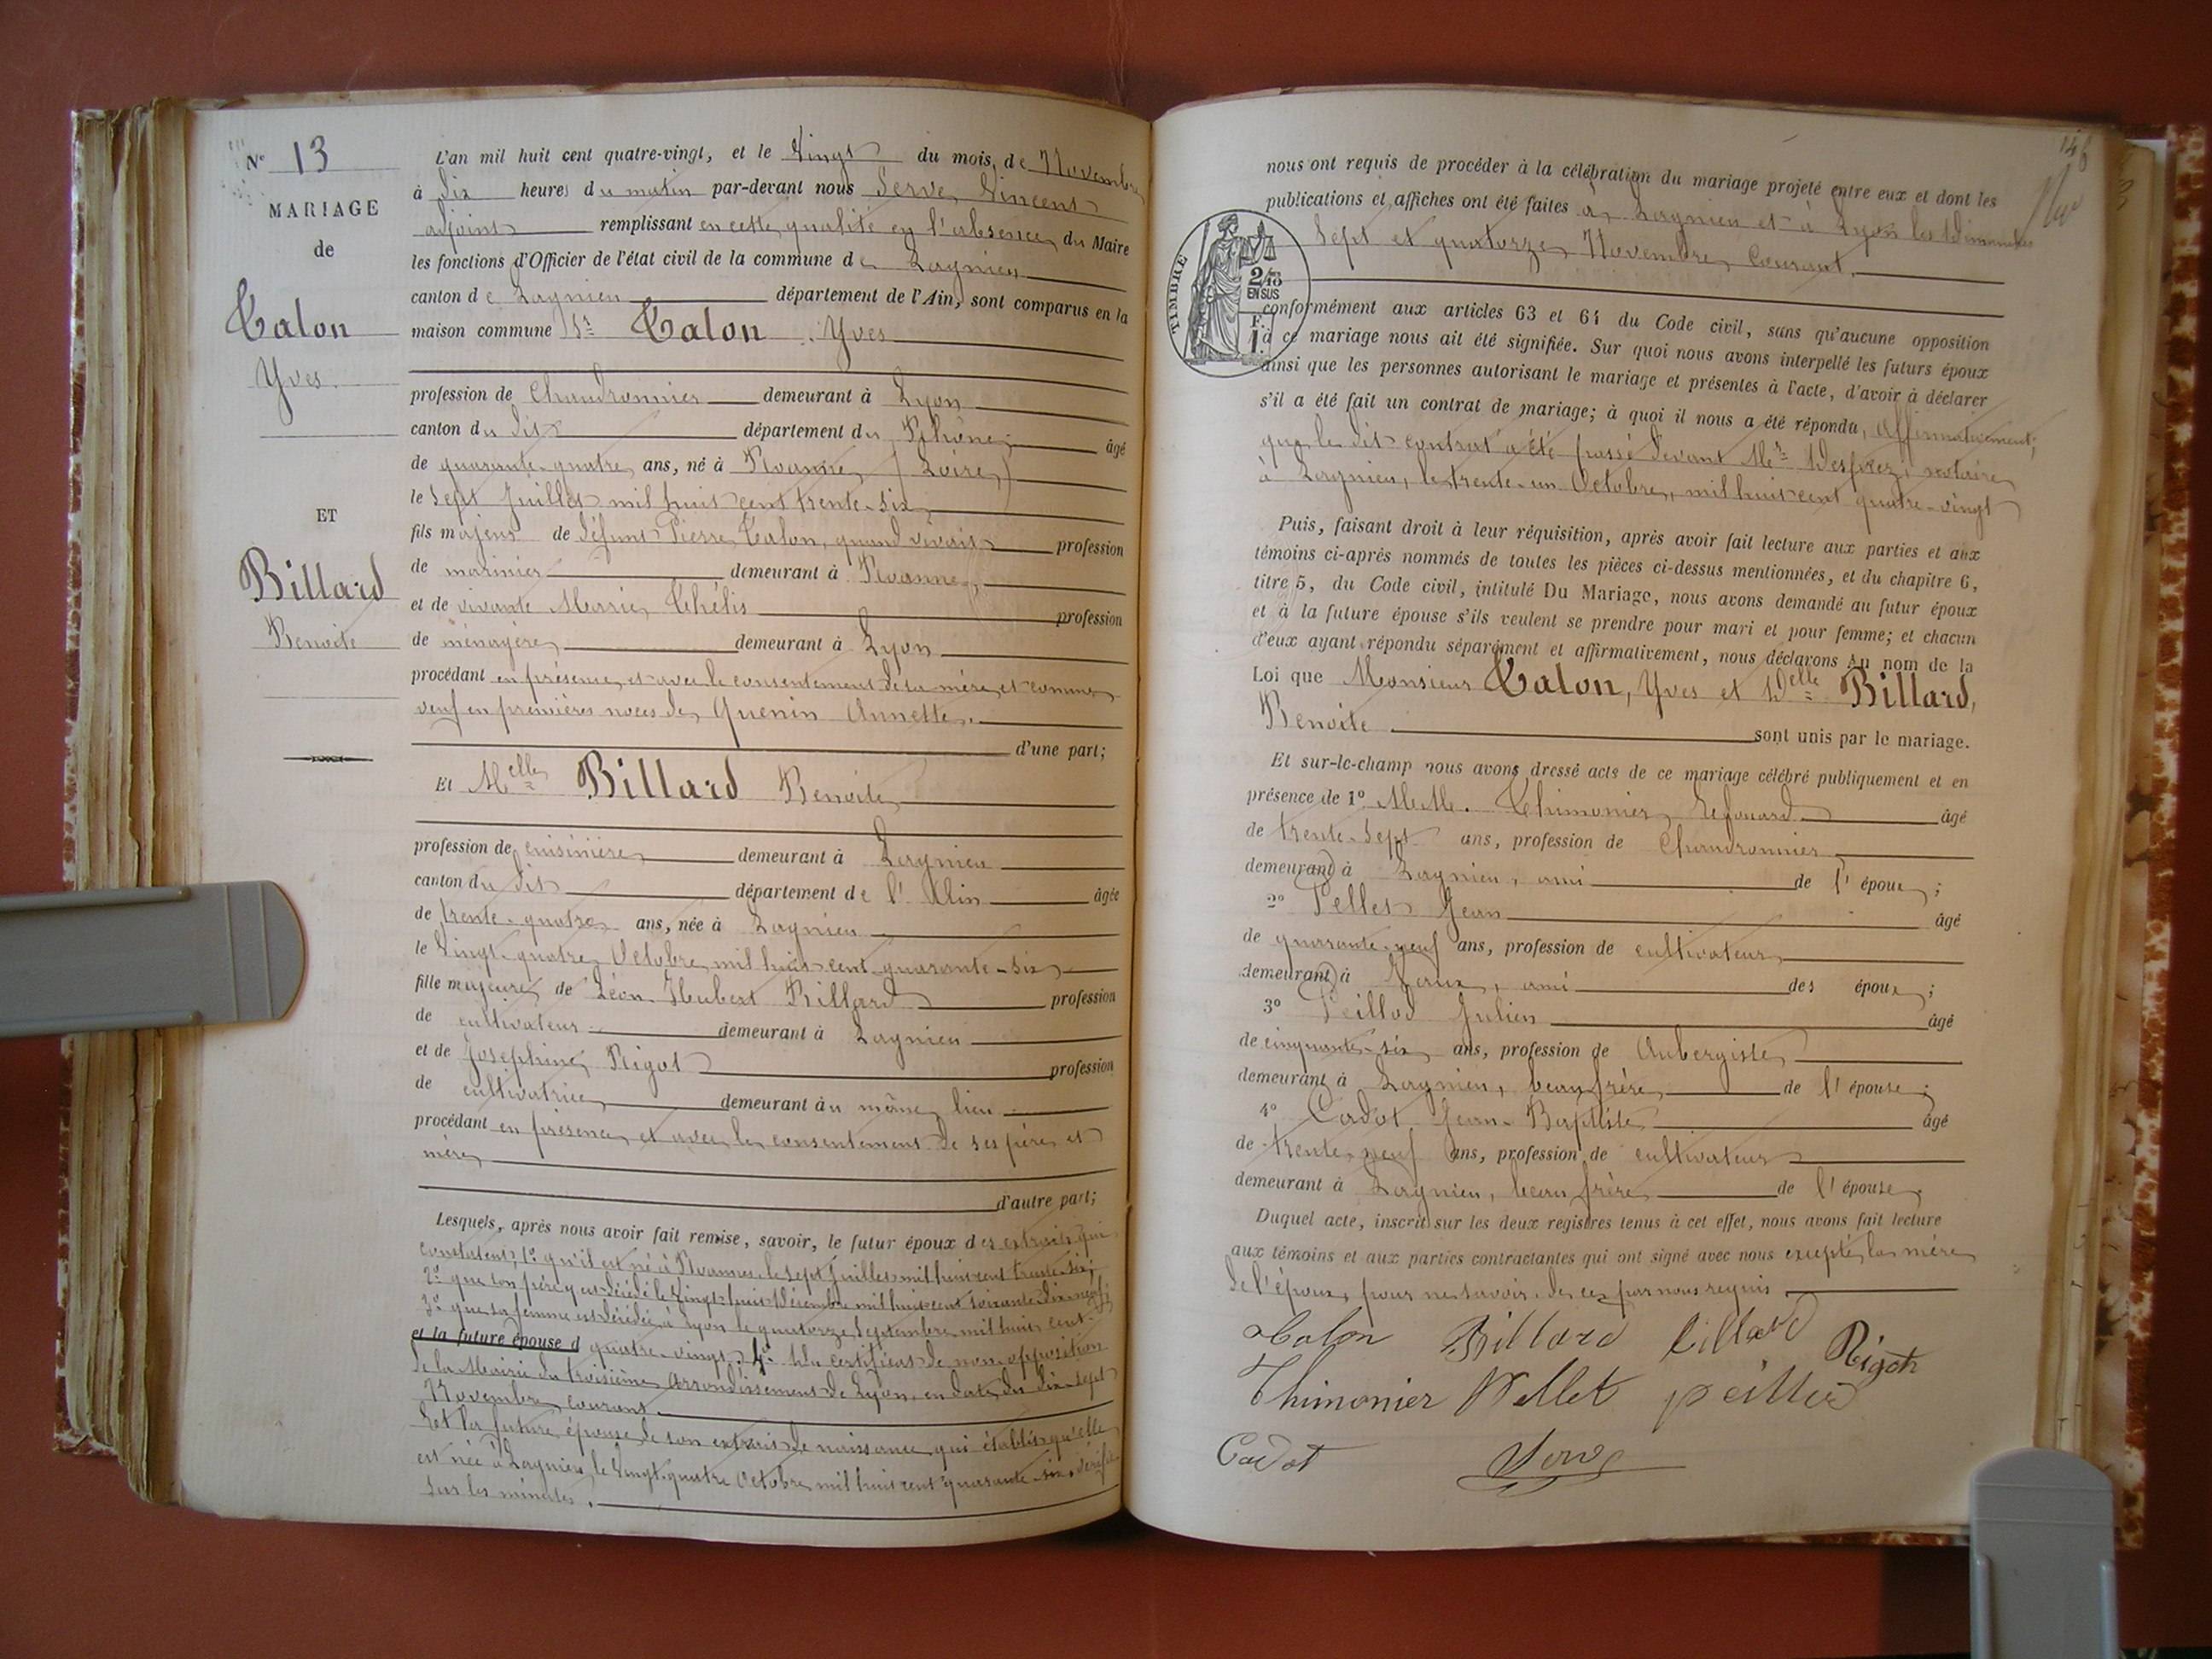 N° 13
MARIAGE
de
Talon
Yves.
ET
Billard
Benoite
L'an mil huit cent quatre-vingt, et le vingt du mois de Novembre
à dix heures du matin par-devant nous Serve, Vincent
adjoint remplissant en cette qualité en l'absence du Maire
les fonctions d'Officier de l'état civil de la commune de Lagnieu
canton de Lagnieu département de l'Ain, sont comparus en la
maison commune Sr Talon Yves
profession de Chaudronnier demeurant à Lyon
canton du dit département du Rhône, âgé
de quarante-quatre ans, né à Roanne, (Loire)
le sept Juillet mil huit cent trente-six
fils majeur de défunt Pierre Talon, quand vivait profession
de marinier demeurant à Roanne,
et de vivante Marie Thélis profession
de ménagère demeurant à Lyon
procédant en présence et avec le consentement de sa mère, et comme
veuf en premières noces de Quenin Annette.
d'une part;
Et Melle Billard Benoite
profession de cuisinière demeurant à Lagnieu
canton du dit département de l'Ain âgée
de trente-quatre ans, née à Lagnieu
le vingt-quatre Octobre mil huit cent quarante-six
fille majeure de Léon Hubert Billard profession
de cultivateur demeurant à Lagnieu
et de Joséphine Rigot profession
de cultivatrice demeurant au même lieu
procédant en présence et avec le consentement de ses père et
mère
d'autre part;
Lesquels, après nous avoir fait remise, savoir, le futur époux des extraits qui
constatent; 1° qu'il est né à Roanne, le sept Juillet mil huit cent trente-six;
2° que son père y est décédé le vingt-huit Décembre mil huit cent soixante-dix-neuf;
3° que sa femme est décédée, à Lyon le quatorze Septembre mil huit cent
et la future épouse d quatre-vingt. 4° Un certificat de non opposition
de la Mairie du troisième arrondissement de Lyon, en date du dix-sept
Novembre courant.
Et la future épouse de son extrait de naissance qui établit qu'elle
est née à Lagnieu le vingt-quatre Octobre mil huit cent quarante-six, vérifié
sur les minutes.
146
nous ont requis de procéder à la célébration du mariage projeté entre eux et dont les
publications et affiches ont été faites à Lagnieu et à Lyon les Dimanches
sept et quatorze Novembre Courant.
TIMBRE
2/10
EN SUS
F.
1.
conformément aux articles 63 et 64 du Code civil, sans qu'aucune opposition
à ce mariage nous ait été signifiée. Sur quoi nous avons interpellé les futurs époux
ainsi que les personnes autorisant le mariage et présentes à l'acte, d'avoir à déclarer
s'il a été fait un contrat de mariage; à quoi il nous a été répondu, affirmativement;
que le dit contrat a été passé devant Me notaire
à Lagnieu, le trente-un Octobre, mil huit cent quatre-vingt
Puis, faisant droit à leur réquisition, après avoir fait lecture aux parties et aux
témoins ci-après nommés de toutes les pièces ci-dessus mentionnées, et du chapitre 6,
titre 5, du Code civil, intitulé Du Mariage, nous avons demandé au futur époux
et à la future épouse s'ils veulent se prendre pour mari et pour femme; et chacun
d'eux ayant répondu séparément et affirmativement, nous déclarons au nom de la
Loi que Monsieur Talon, Yves et Delle Billard,
Benoite sont unis par le mariage.
Et sur-le-champ nous avons dressé acte de ce mariage célébré publiquement et en
présence de 1° MM. Thimonier Edouard âgé
de trente-sept ans, profession de Chaudronnier
demeurant à Lagnieu, ami de l'époux;
2° Pellet Jean âgé
de quarante-neuf ans, profession de cultivateur
demeurant à ami des époux;
3° Peillod Julien âgé
de cinquante-six ans, profession de Aubergiste
demeurant à Lagnieu, beau frère de l'épouse;
4° Cadot Jean-Baptiste âgé
de trente-neuf ans, profession de cultivateur
demeurant à Lagnieu, beau frère de l'épouse
Duquel acte, inscrit sur les deux registres tenus à cet effet, nous avons fait lecture
aux témoins et aux parties contractantes qui ont signé avec nous excepté la mère
de l'époux, pour ne savoir, de ce par nous requis
Talon Billard Billard Rigot
Thimonier Pellet peillod
Cadot Serve